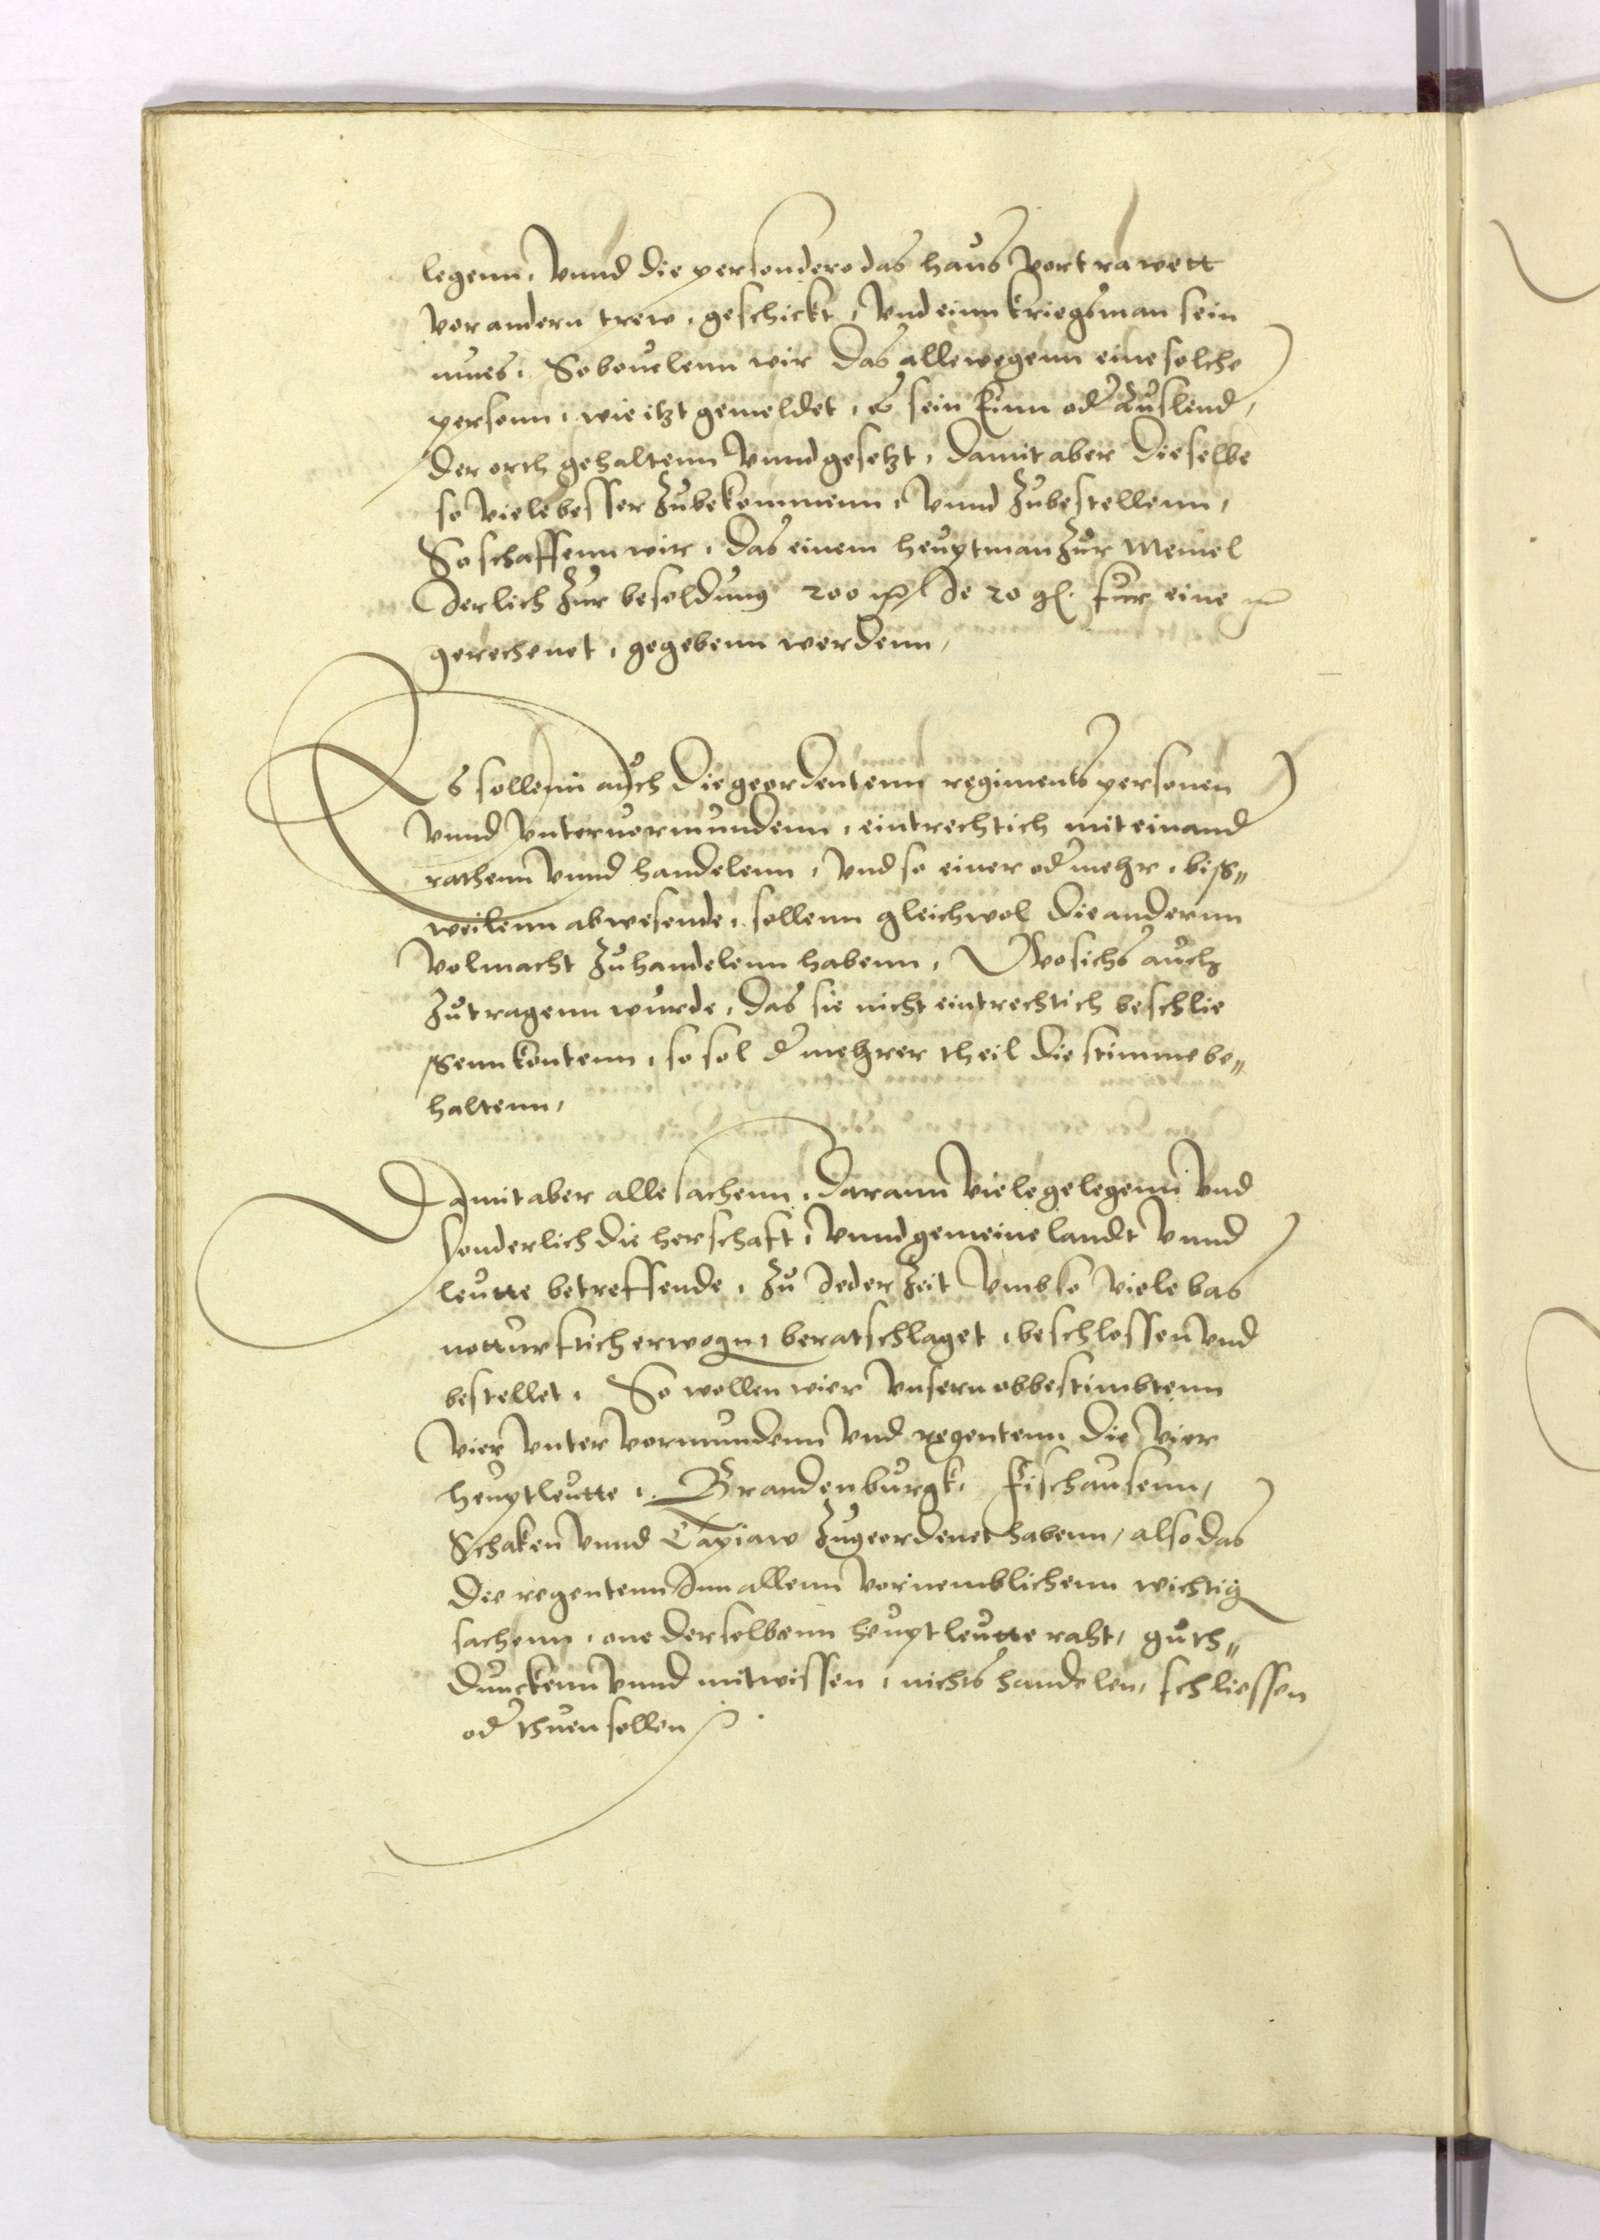 legenn, Vnnd die person dero das haus Vortrawett
Vor andern trew, geschickt, Vnd einn kriegsman sein
mues, So beuelenn wir das allewegenn eine solche
personn, wie itzt gemeldet, es sein Einn od Auslend,
der orth gehaltenn Vnnd gesetzt, damit aber dieselbe
so viele besser Zubekommenn, Vnnd Zubestellenn,
So schaffenn wir, das einem heuptman Zur Memel
Jerlich Zur besoldung 200 Je 20 gl. fur eine
gerechenet, gegebenn werdenn,
Es sollenn auch die geordentenn regiments personen
Vnnd Vnteruormundenn, eintrechtich mit einand
rathenn Vnnd handelenn, Vnd so einer od mehr, biß=
weilenn abwesende, sollenn gleichwol die andernn
Volmacht Zuhandelenn habenn, Wo sichs auch
Zutragenn wurde, das sie nicht eintrechtich beschlie
ßenn kontenn, so sol d mehrer theil die stimme be=
haltenn,
Damit aber alle sachenn, darann Viele gelegenn Vnd
sonderlich die herschaft, Vnnd gemeine landt Vnnd
leutte betreffende, Zu Jeder Zeit Vmb so Viele bas
notturftich erwogn, beratschlaget, beschlossen Vnd
bestellet, So wollen wier Vnsern obbestimbtenn
Vier Vnter Vormundenn Vnd regentenn die Vier
heuptleutte, Brandenburgk, Fischausenn,
Schaken Vnnd Tapiaw Zugeordenet habenn, also das
die regentenn Inn allenn Vornemblichenn wichtig
sachenn, one derselbenn heuptleutte raht, guth=
dunckenn Vnnd mitwissen, nichts handelen, schliessen
od thuen sollen